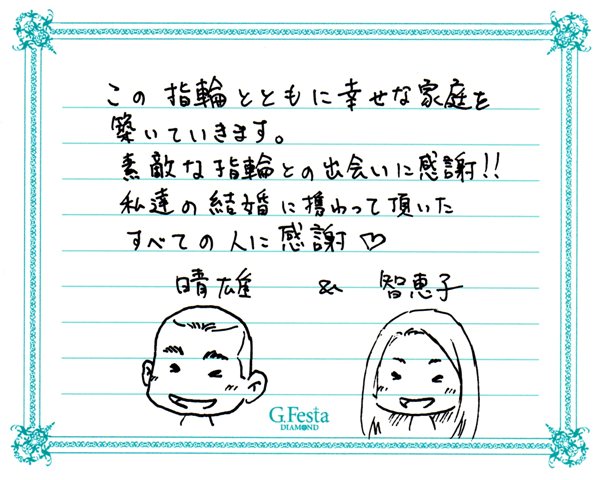 この指輪とともに幸せな家庭を
築いていきます。
素敵な指輪との出会いに感謝!!
私達の結婚に携わって頂いた
すべての人に感謝♡
晴雄 & 智恵子
G.Festa
DIAMOND